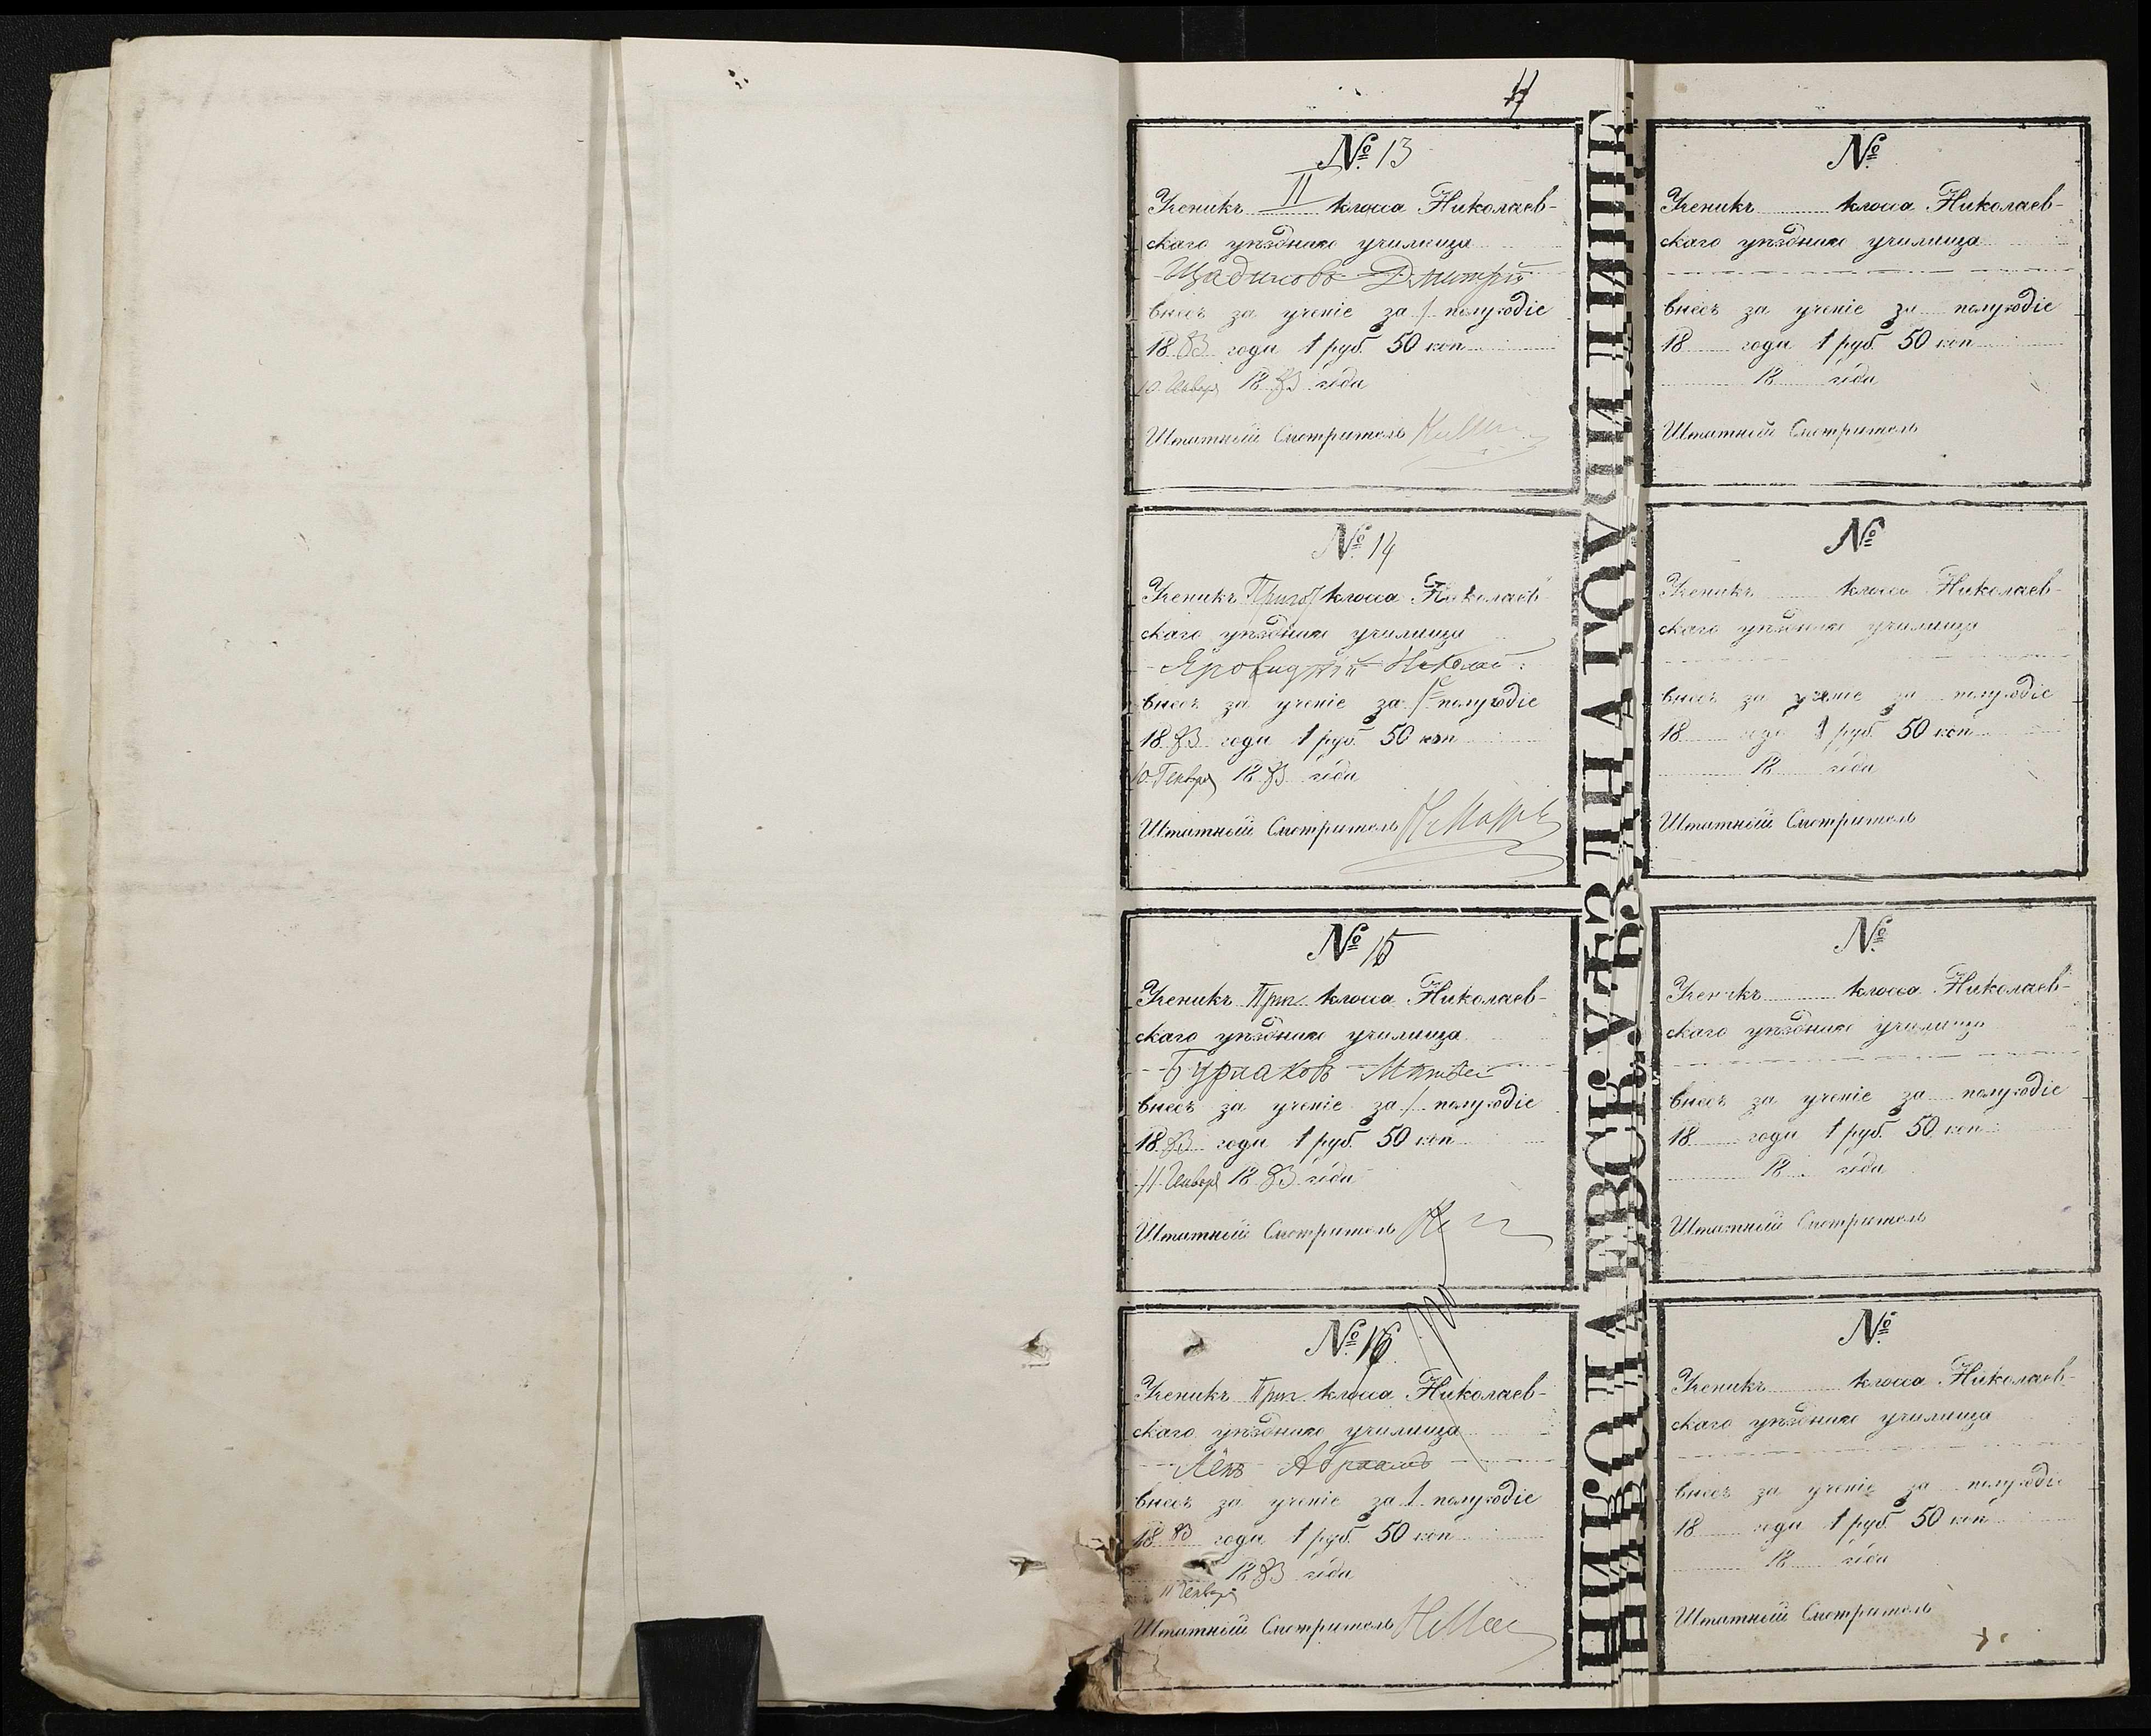 № 13
Ученикъ II класса Николаев-
скаго уѣзднаго училища
Дмитрій
внесъ за ученіе за 1 полугодіе
18 83 года 1 руб. 50 коп
10 Января 18 83 года
Штатный Смотритель
№ 14
Ученикъ Пригот класса Николаев-
скаго уѣзднаго училища
Николай
внесъ за ученіе за 1е полугодіе
18 83 года 1 руб. 50 коп
10 Генваря 18 83 года
Штатный Смотритель
№ 15
Ученикъ Приг. класса Николаев-
скаго уѣзднаго училища
Бурлаковъ Матвѣй
внесъ за ученіе за 1 полугодіе
18 83 года 1 руб. 50 коп
11 Января 18 83 года
Штатный Смотритель
№ 16
Ученикъ Приг. класса Николаев-
скаго уѣзднаго училища
Абрамъ
внесъ за ученіе за 1 полугодіе
18 83 года 1 руб. 50 коп
18 83 года
11 Генваря
Штатный Смотритель
НИКОЛАЕВСК. УѢЗДНАГО УЧИЛИЩЕ
№
Ученикъ класса Николаев-
скаго уѣзднаго училища
внесъ за ученіе за полугодіе
18 года 1 руб. 50 коп
18 года
Штатный Смотритель
№
Ученикъ класса Николаев-
скаго уѣзднаго училища
внесъ за ученіе за полугодіе
18 года 1 руб. 50 коп
18 года
Штатный Смотритель
№
Ученикъ класса Николаев-
скаго уѣзднаго училища
внесъ за ученіе за полугодіе
18 года 1 руб. 50 коп
18 года
Штатный Смотритель
№
Ученикъ класса Николаев-
скаго уѣзднаго училища
внесъ за ученіе за полугодіе
18 года 1 руб. 50 коп
18 года
Штатный Смотритель